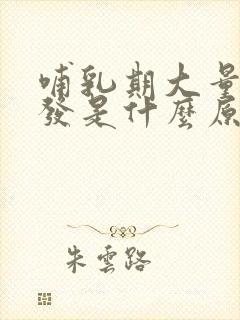 哺乳期大量
發是什麼原
朱雲路